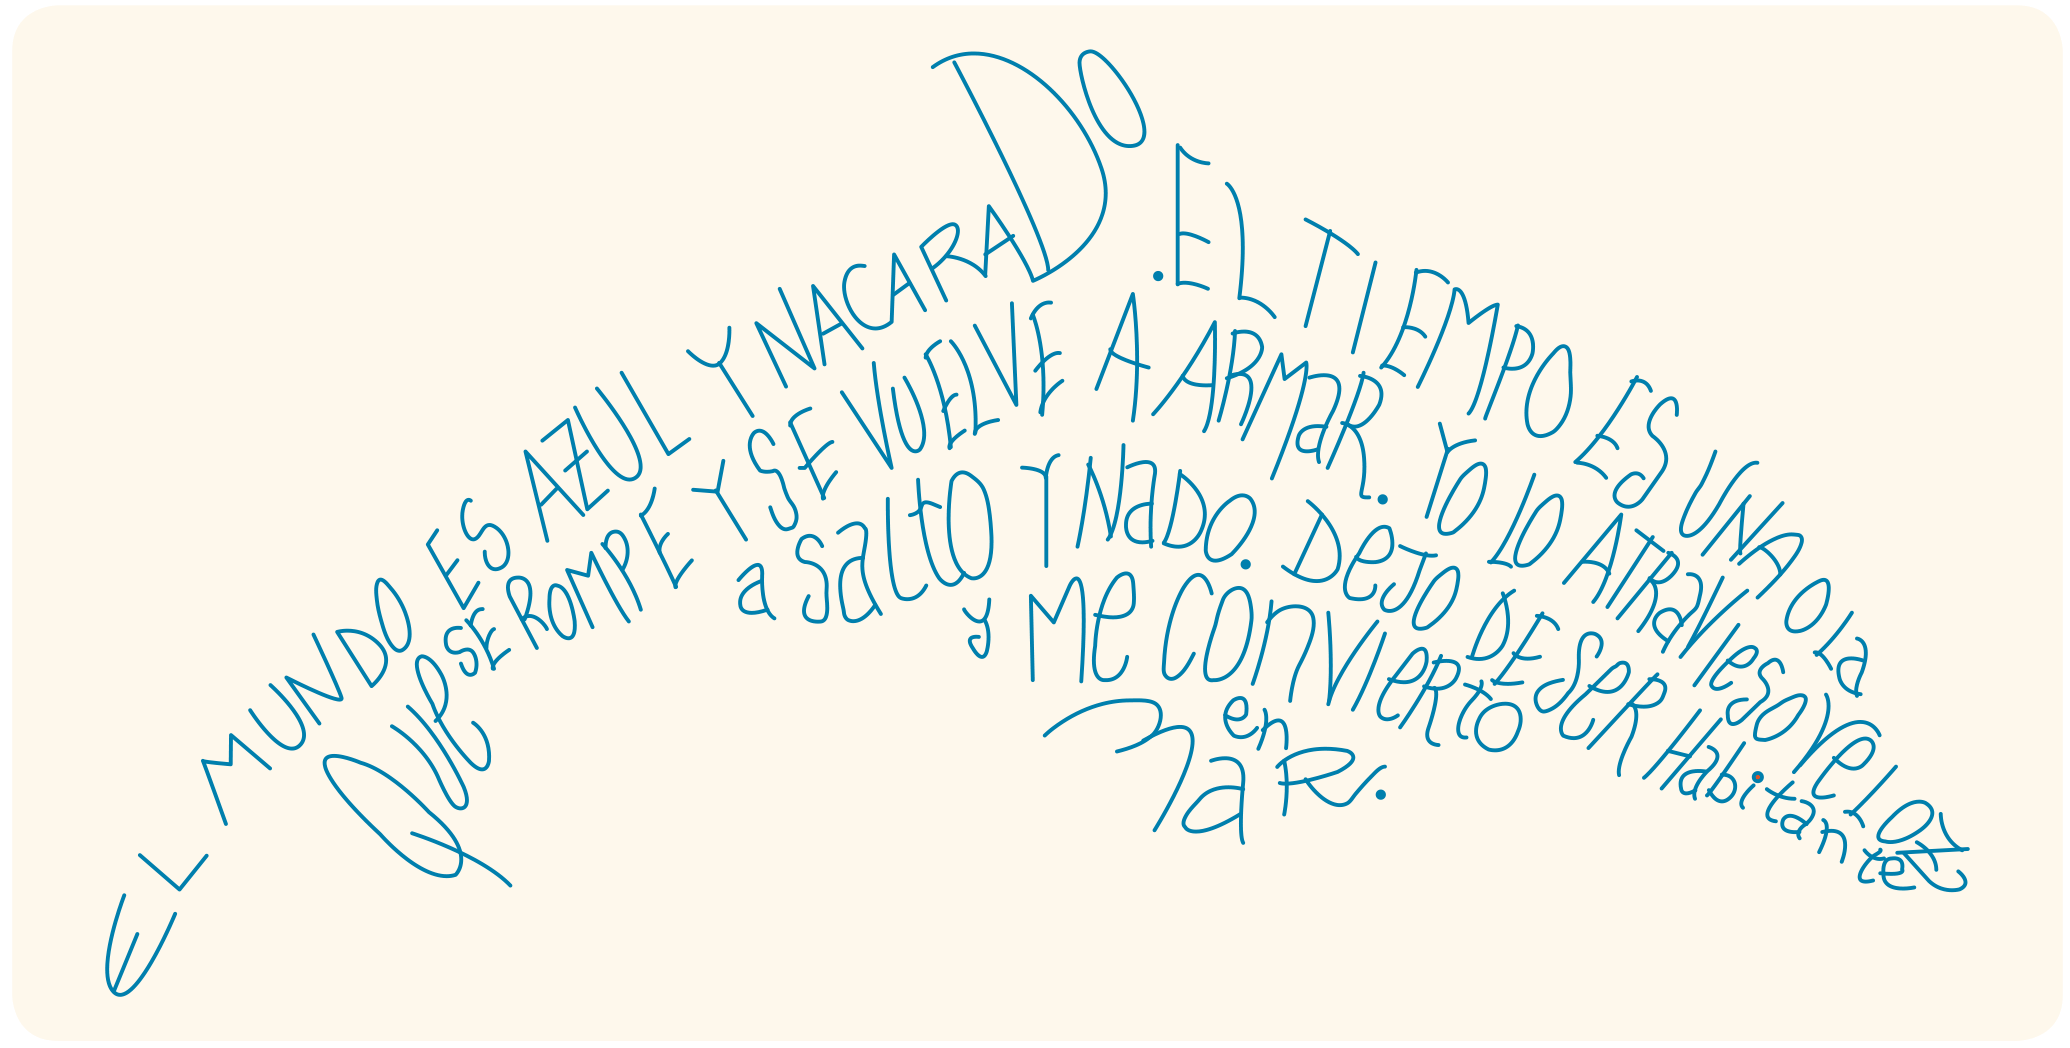 EL MUNDO ES AZUL Y NACARADO. EL TIEMPO ES UNA OLA
QUE SE ROMPE Y SE VUELVE A ARMAR. YO LO ATRAVIESO VELOZ
a SALTO Y NADO. DEJO DE SER HabitanTe
y ME CONVIERTO
en
MAR.